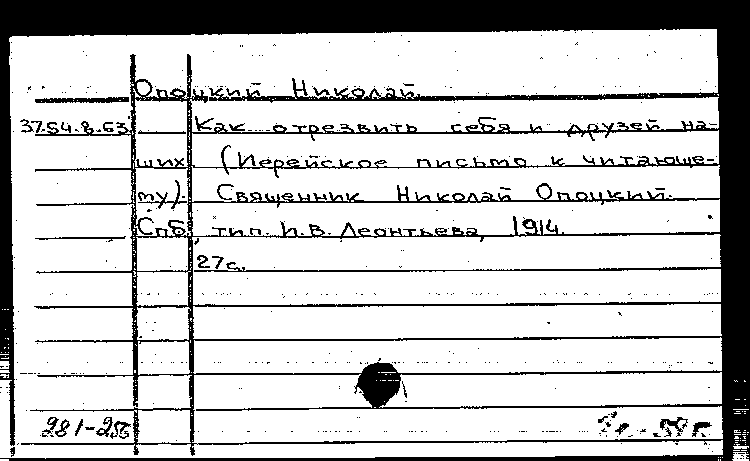 Опоцкий, Николай.
37.54.8.63 Как отрезвить себя и друзей на-
ших. (Иерейское письмо к читающе-
му). Священник Николай Опоцкий.
Спб, тип. И.В. Леонтьева, 1914.
27с.
281-256